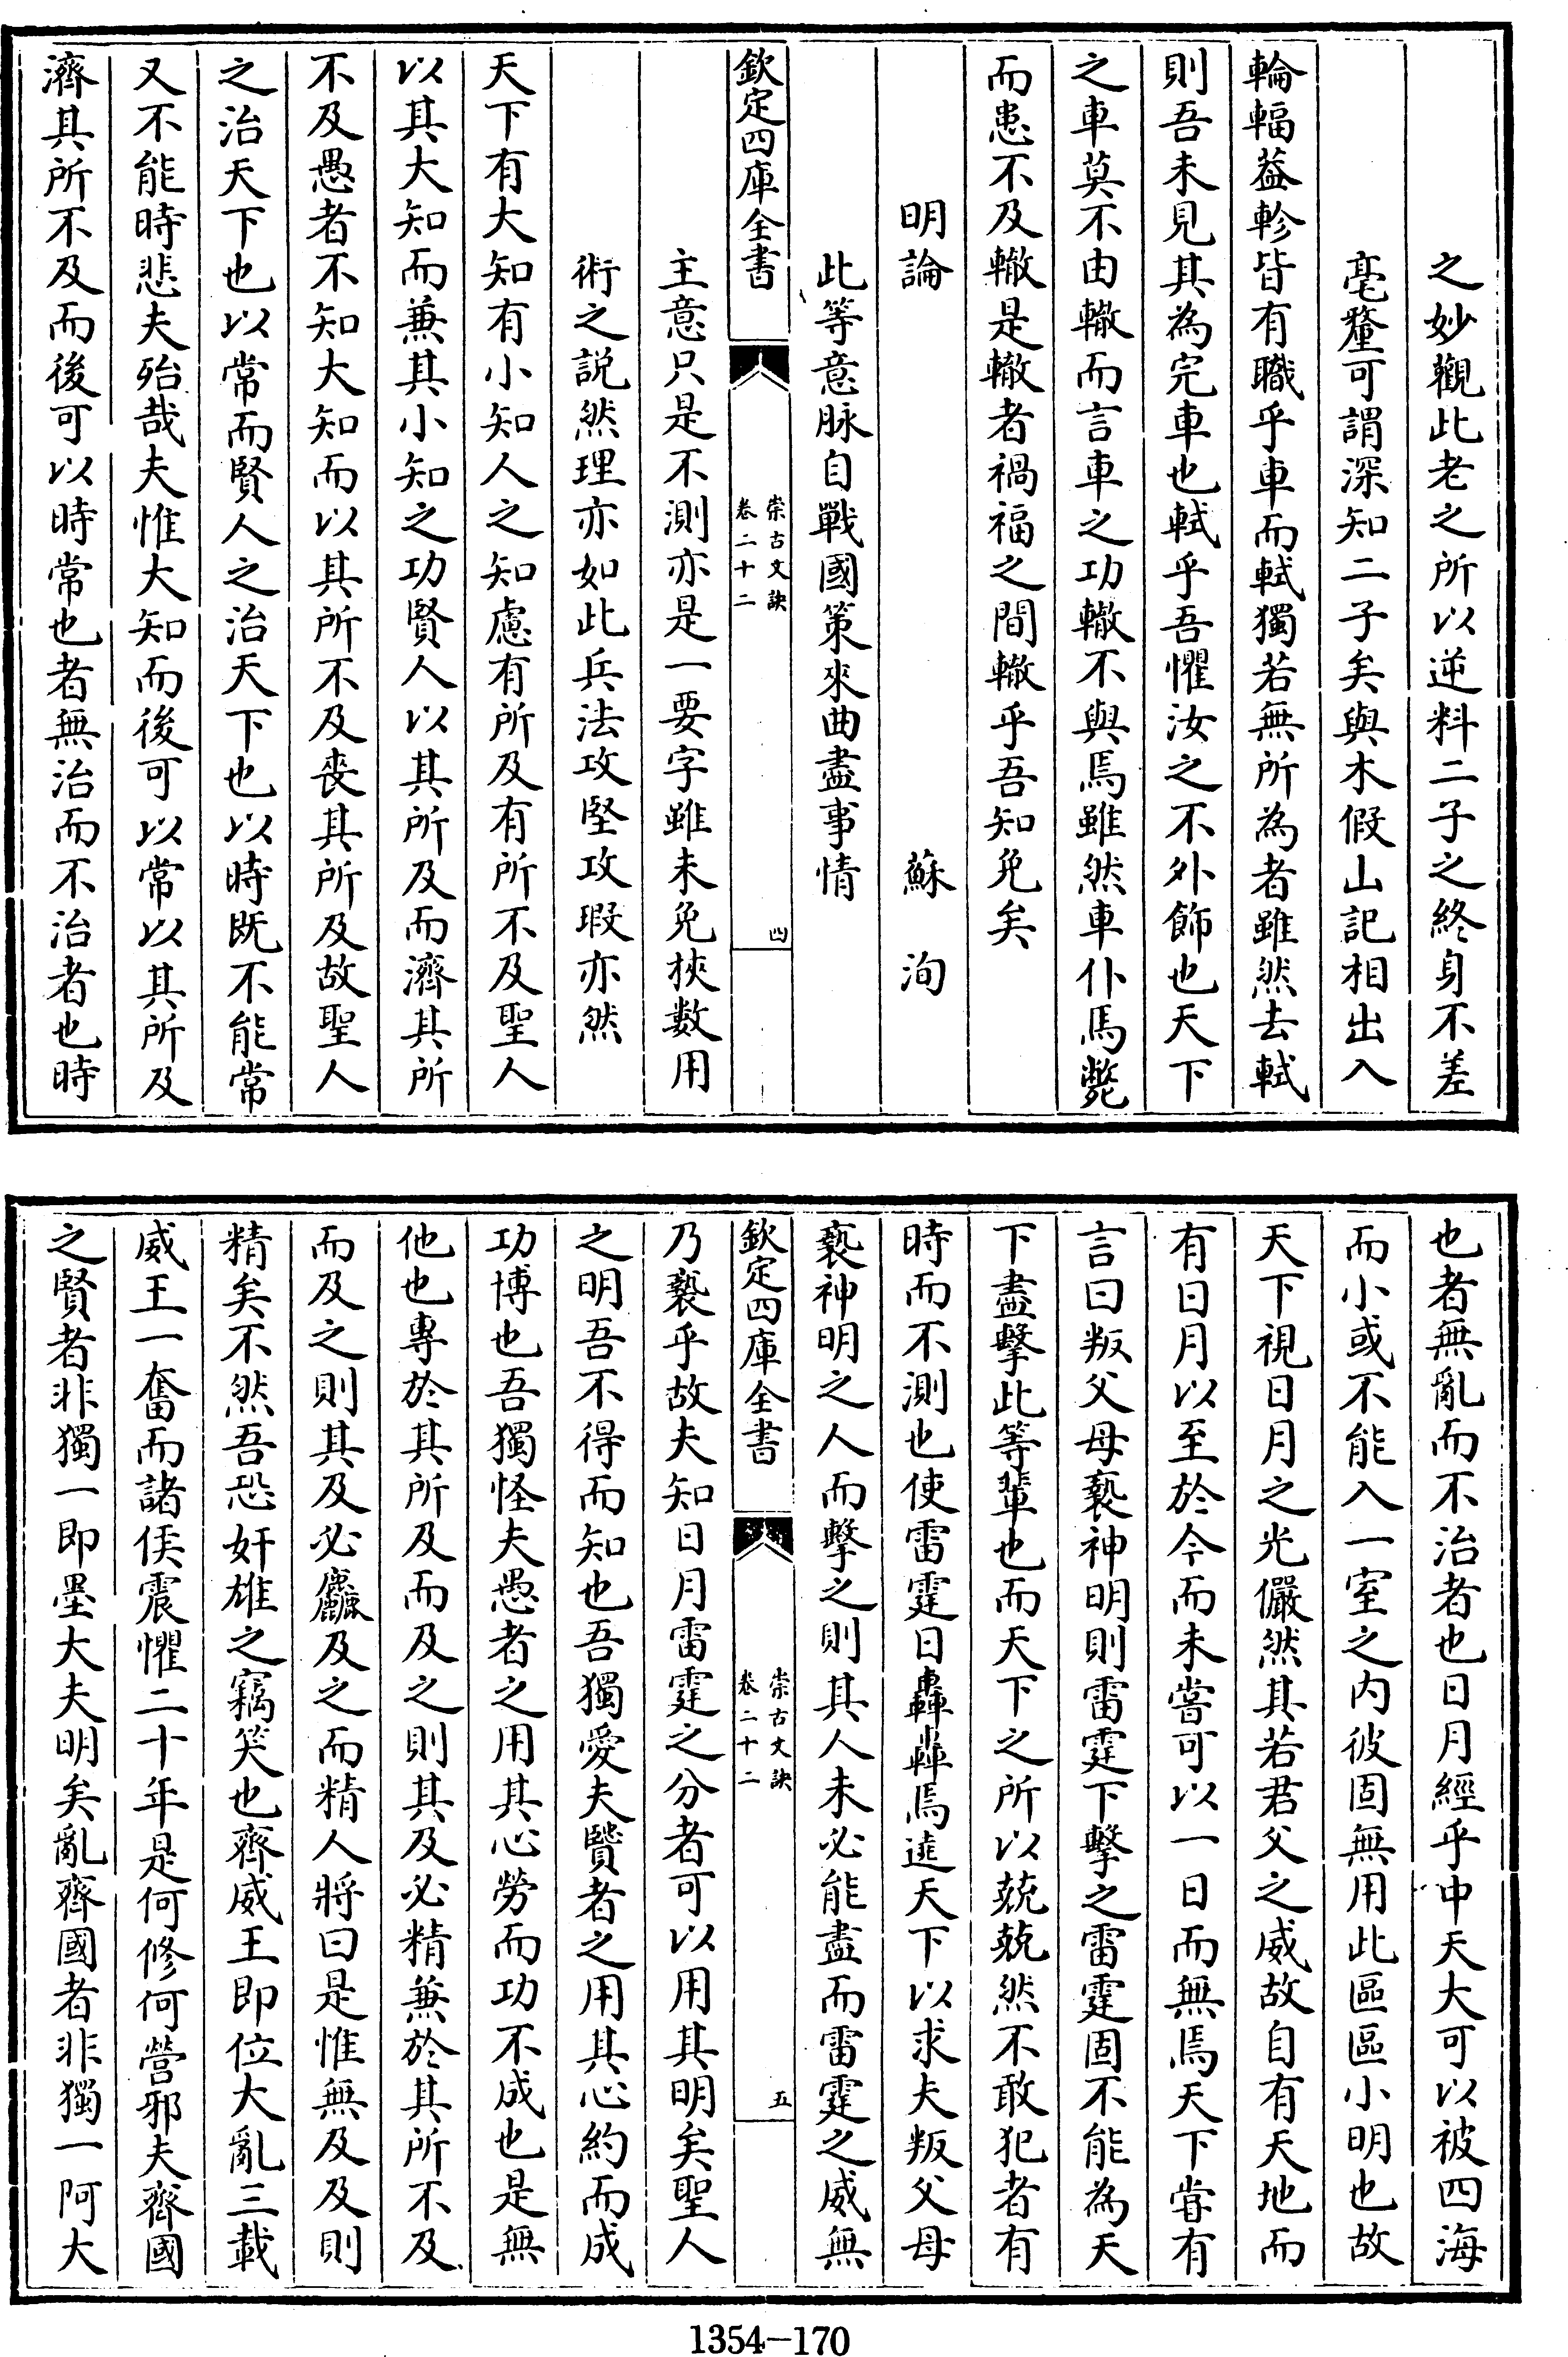 之妙觀此老之所以逆料二子之終身不差
毫釐可謂深知二子矣與木假山記相出入
輪輻葢軫皆有職乎車而軾獨若無所為者雖然去軾
則吾未見其為完車也軾乎吾懼汝之不外飾也天下
之車莫不由轍而言車之功轍不與焉雖然車仆馬斃
而患不及轍是轍者禍福之間轍乎吾知免矣
明論 蘇洵
此等意脉自戰國策來曲盡事情
欽定四庫全書
崇古文訣
卷二十二
四
主意只是不測亦是一要字雖未免挾數用
術之說然理亦如此兵法攻堅攻瑕亦然
天下有大知有小知人之知慮有所及有所不及聖人
以其大知而兼其小知之功賢人以其所及而濟其所
不及愚者不知大知而以其所不及喪其所及故聖人
之治天下也以常而賢人之治天下也以時既不能常
又不能時悲夫殆哉夫惟大知而後可以常以其所及
濟其所不及而後可以時常也者無治而不治者也時
也者無亂而不治者也日月經乎中天大可以被四海
而小或不能入一室之内彼固無用此區區小明也故
天下視日月之光儼然其若君父之威故自有天地而
有日月以至於今而未嘗可以一日而無焉天下甞有
言曰叛父母褻神明則雷霆下擊之雷霆固不能為天
下盡擊此等輩也而天下之所以兢兢然不敢犯者有
時而不測也使雷霆日轟轟焉遶天下以求夫叛父母
褻神明之人而擊之則其人未必能盡而雷霆之威無
欽定四庫全書
崇古文訣
卷二十二
五
乃褻乎故夫知日月雷霆之分者可以用其明矣聖人
之明吾不得而知也吾獨愛夫賢者之用其心約而成
功博也吾獨怪夫愚者之用其心勞而功不成也是無
他也專於其所及而及之則其及必精兼於其所不及
而及之則其及必麤及之而精人將曰是惟無及及則
精矣不然吾恐奸雄之竊笑也齊威王即位大亂三載
威王一奮而諸侯震懼二十年是何修何營邪夫齊國
之賢者非獨一即墨大夫明矣亂齊國者非獨一阿大
1354-170